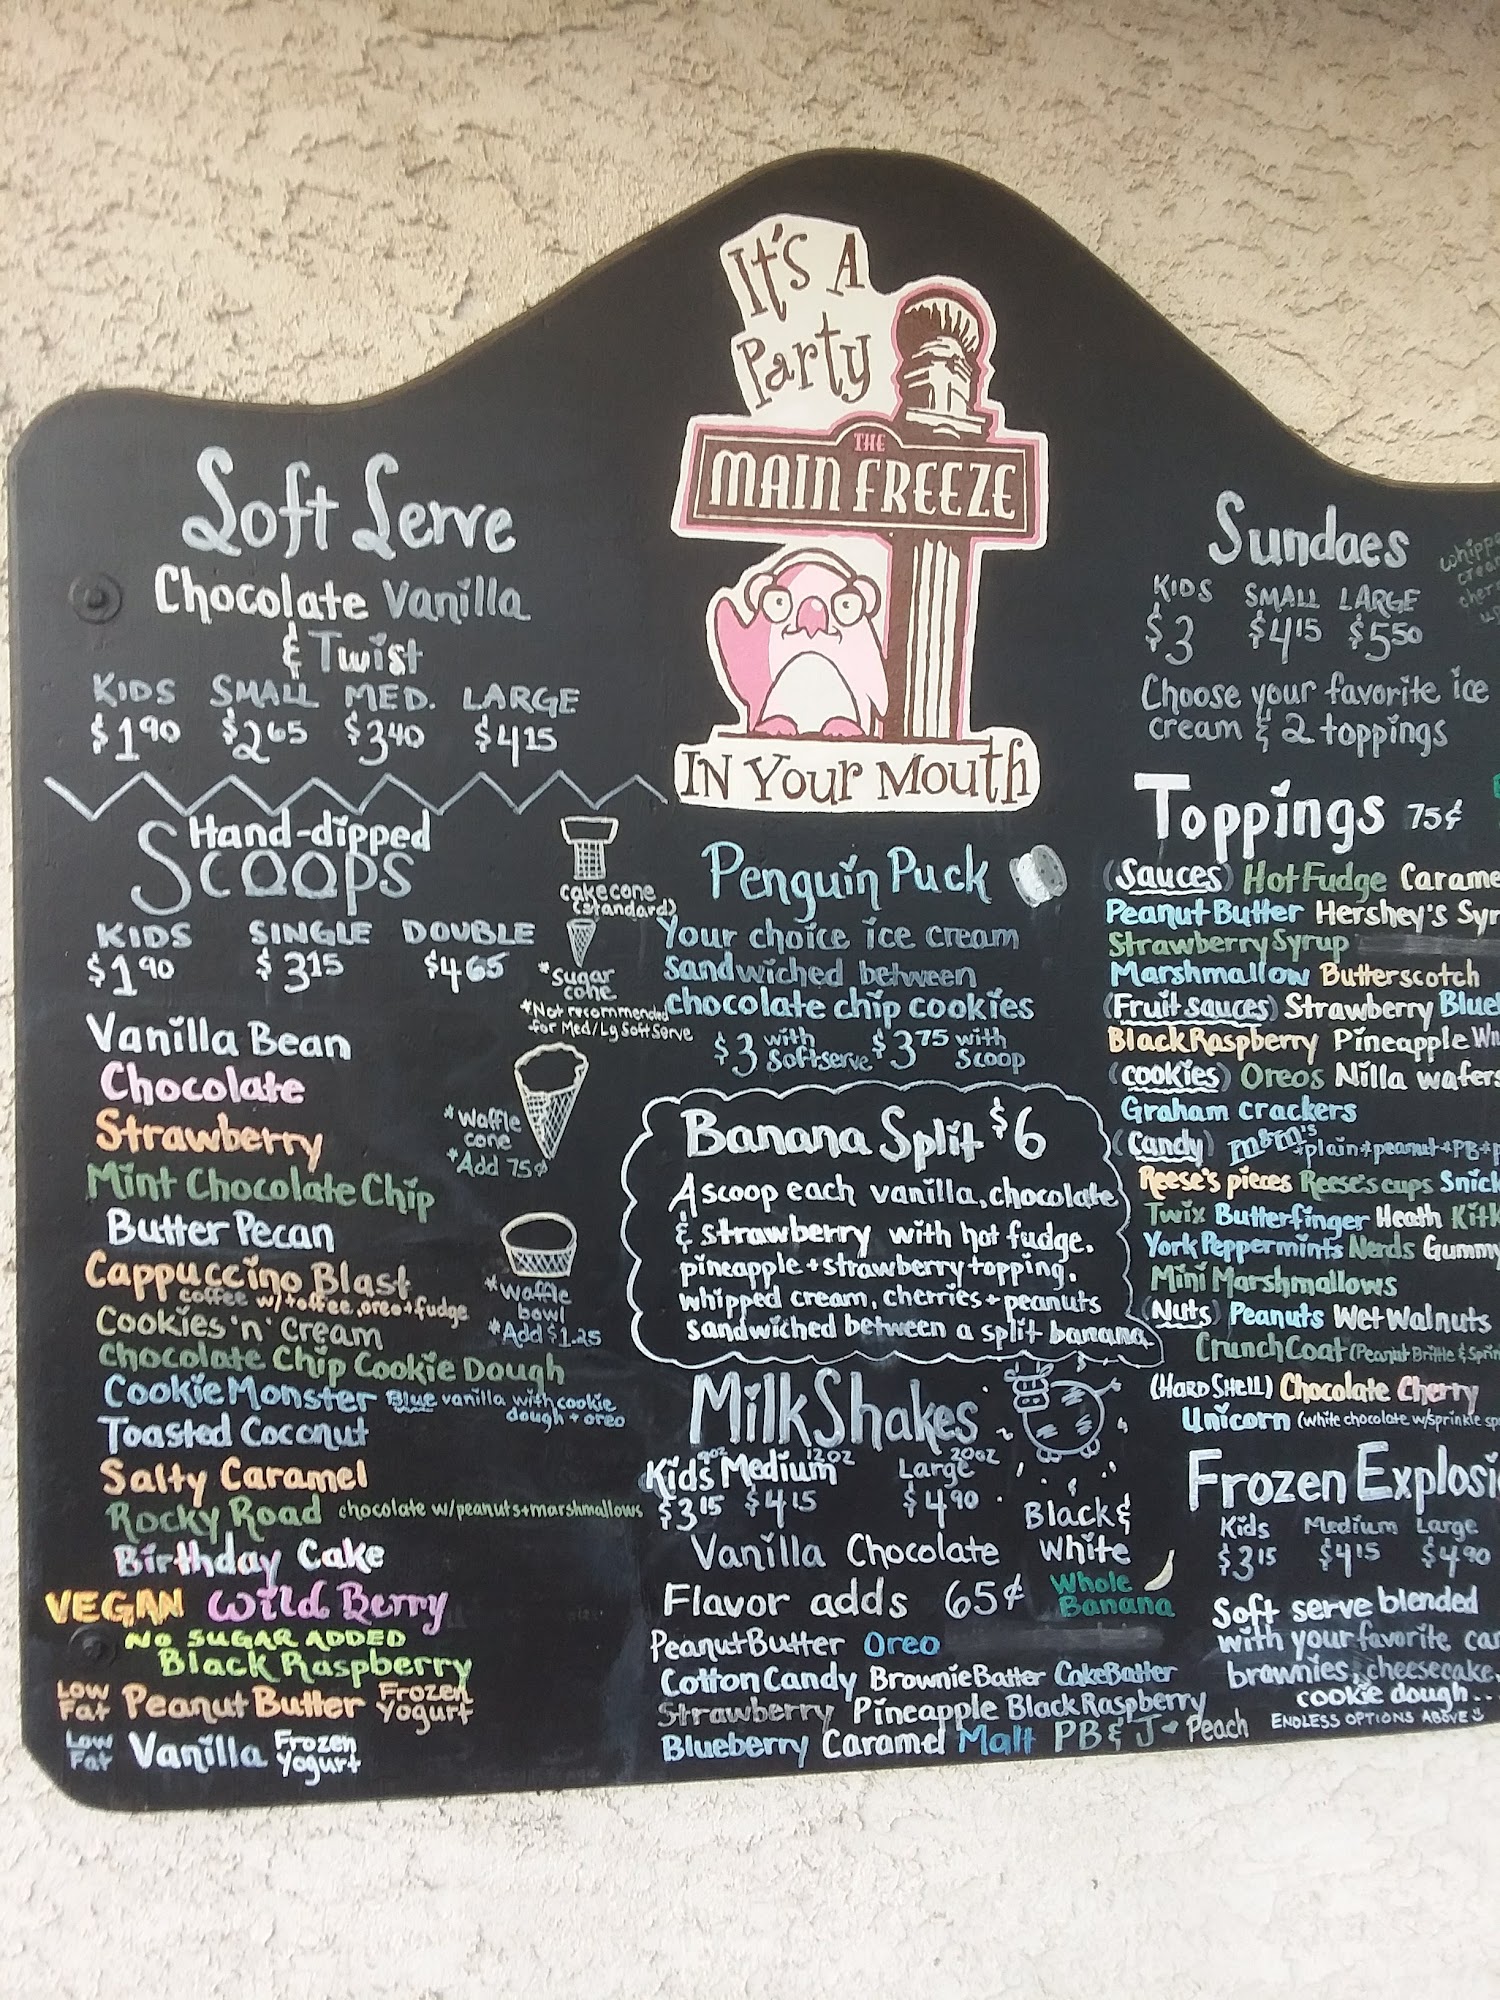 It's A
Party
THE
MAIN FREEZE
IN Your Mouth
Soft Serve
Chocolate Vanilla
& Twist
KIDS SMALL MED. LARGE
$1.90 $2.65 $3.40 $4.15
Hand-dipped
Scoops
KIDS SINGLE DOUBLE
$1.90 $3.15 $4.65
cake cone
(standard)
*Sugar
cone
*Not recommended
for Med/Lg Soft Serve
*Waffle
cone
*Add 75¢
*Waffle
bowl
*Add $1.25
Vanilla Bean
Chocolate
Strawberry
Mint Chocolate Chip
Butter Pecan
Cappuccino Blast
coffee w/toffee, oreo + fudge
Cookies 'n' Cream
Chocolate Chip Cookie Dough
Cookie Monster Blue vanilla with cookie
dough + oreo
Toasted Coconut
Salty Caramel
Rocky Road chocolate w/peanuts + marshmallows
Birthday Cake
VEGAN Wild Berry
NO SUGAR ADDED
Black Raspberry
Low
Fat Peanut Butter Frozen
Yogurt
Low
Fat Vanilla Frozen
Yogurt
Penguin Puck
Your choice ice cream
sandwiched between
chocolate chip cookies
$3 with
Softserve $3.75 with
Scoop
Banana Split $6
A scoop each vanilla, chocolate
& strawberry with hot fudge,
pineapple + strawberry topping,
whipped cream, cherries + peanuts
sandwiched between a split banana
MilkShakes
Kids 9oz Medium 12oz Large 20oz
$3.15 $4.15 $4.90
Vanilla Chocolate Black &
White
Flavor adds 65¢ Whole
Banana
Peanut Butter Oreo
Cotton Candy Brownie Batter Cake Batter
Strawberry Pineapple Black Raspberry
Blueberry Caramel Malt PB & J Peach
Sundaes
KIDS SMALL LARGE
$3 $4.15 $5.50
Choose your favorite ice
cream & 2 toppings
Toppings 75¢
(Sauces) Hot Fudge
Peanut Butter Hershey's
Strawberry Syrup
Marshmallow Butterscotch
(Fruit sauces) Strawberry
Black Raspberry Pineapple
(cookies) Oreos Nilla wafers
Graham crackers
(Candy) m&m's *plain*peanut*PB*
Reese's pieces Reese's cups
Twix Butterfinger Heath
York Peppermints Nerds Gummy
Mini Marshmallows
(Nuts) Peanuts Wet Walnuts
Crunch Coat (Peanut Brittle &
(Hard Shell) Chocolate Cherry
Unicorn (white chocolate w/sprinkle
Frozen
Kids Medium Large
$3.15 $4.15 $4.90
Soft serve blended
with your favorite
brownies, cheesecake,
cookie dough...
ENDLESS OPTIONS ABOVE